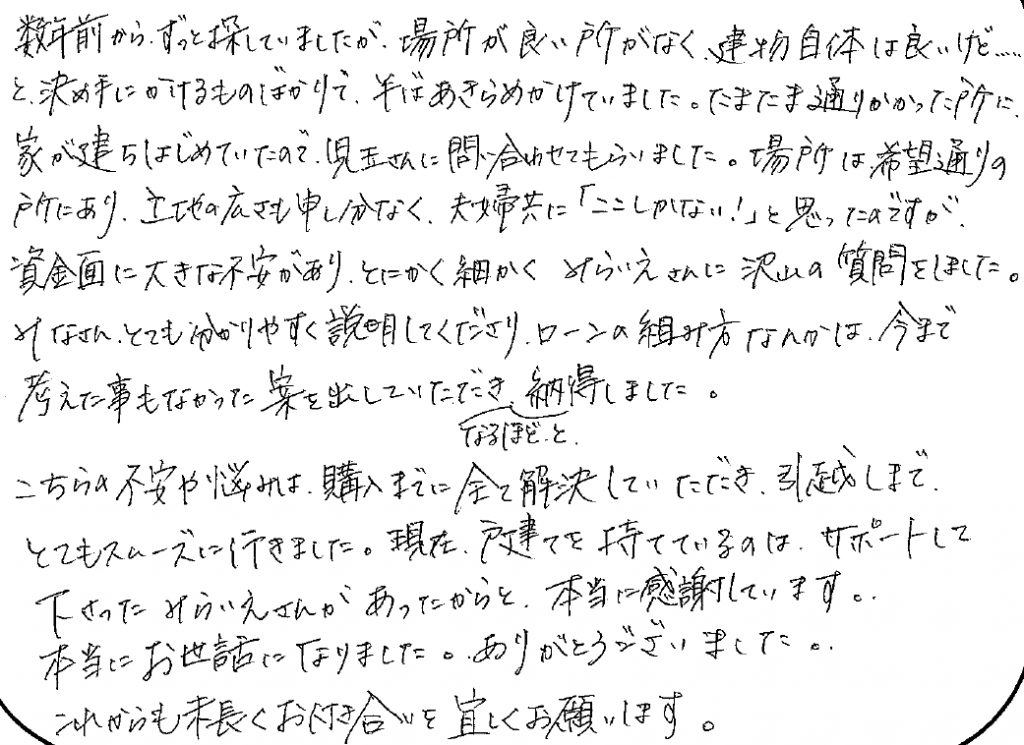 数年前から、ずっと探していましたが、場所が良い所がなく、建物自体は良いけど……
と、決め手にかけるものばかりで、半ばあきらめかけていました。たまたま通りかかった所に、
家が建ちはじめていたので、児玉さんに問い合わせてもらいました。場所は希望通りの
所にあり、立地の広さも申し分なく、夫婦共に「ここしかない！」と思ったのですが、
資金面に大きな不安があり、とにかく細かく みらいえさんに 沢山の質問をしました。
みなさん、とても分かりやすく説明してくださり、ローンの組み方なんかは、今まで
考えた事もなかった案を出していただき、納得しました。
なるほど、と、
こちらの不安や悩みは、購入までに全て解決していただき、引越しまで、
とてもスムーズに行きました。現在、戸建てを持てているのは、サポートして
下さったみらいえさんがあったからと、本当に感謝しています。
本当にお世話になりました。ありがとうございました。
これからも末長くお付き合いを宜しくお願いします。